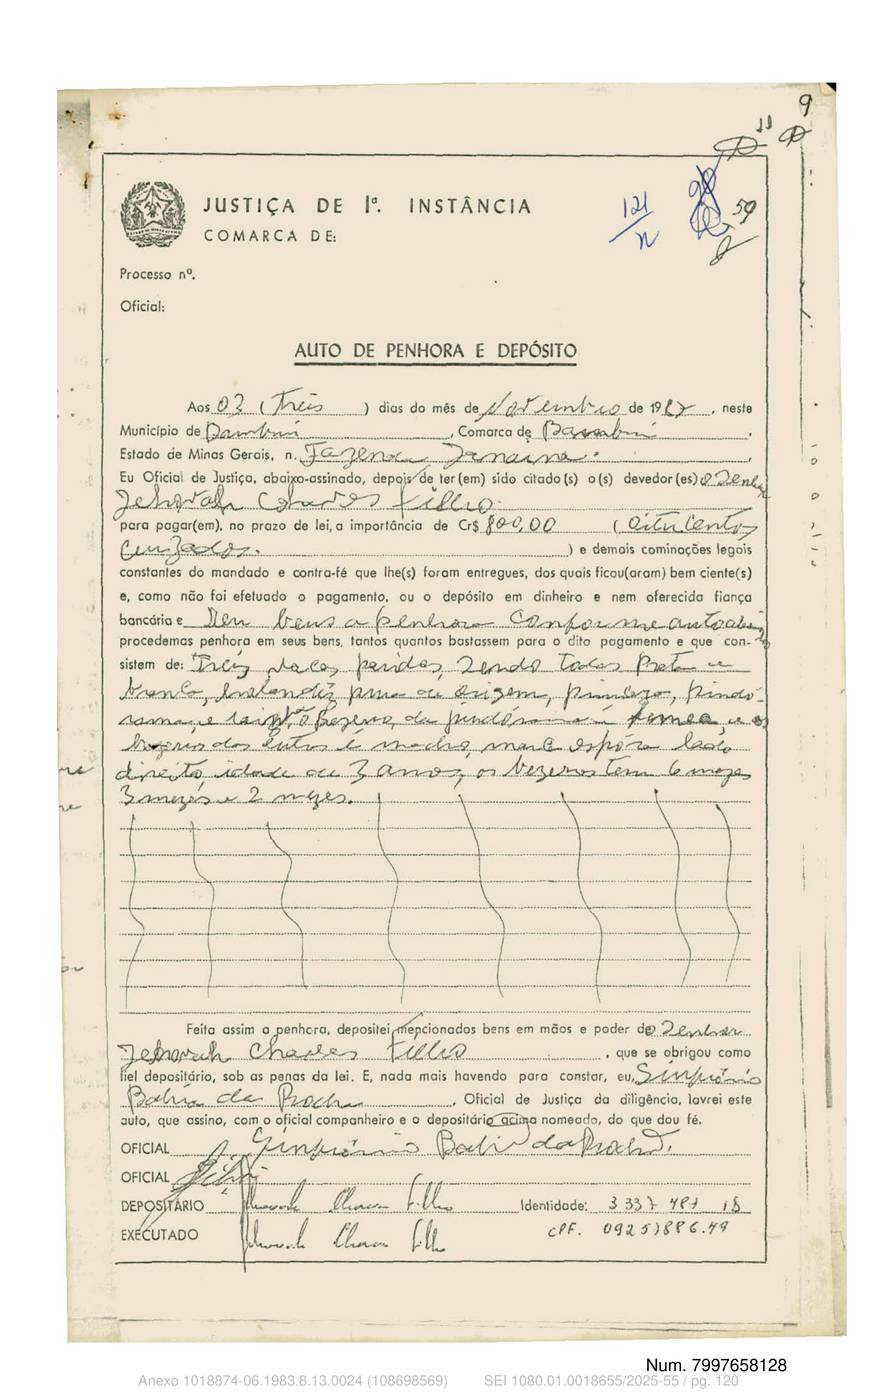 9
11
JUSTIÇA DE Iª. INSTÂNCIA
121
59
COMARCA DE:
Processo nº.
Oficial:
AUTO DE PENHORA E DEPÓSITO
Aos 03 (Três ) dias do mês de Novembro de 1987 , neste
Município de Bambuí , Comarca de Bambuí .
Estado de Minas Gerais, n. Fazenda .
Eu Oficial de Justiça, abaixo-assinado, depois de ter(em) sido citado(s) o(s) devedor(es) o Senhor
Jehovah Chaves Filho
para pagar(em), no prazo de lei, a importância de Cr$ 800,00 ( oitocentos
cruzados. ) e demais cominações legais
constantes do mandado e contra-fé que lhe(s) foram entregues, dos quais ficou(aram) bem ciente(s)
e, como não foi efetuado o pagamento, ou o depósito em dinheiro e nem oferecida fiança
bancária e Deu bens a penhora conforme auto
procedemas penhora em seus bens, tantos quantos bastassem para o dito pagamento e que con-
sistem de: Três vacas paridas, sendo todas Preta e
branca, de origem, princeza, pindó-
rama, e o Bezerro da pindórama é femea, e os
bezerros das outras é macho, lado
direito, idade de 3 anos, os bezerros tem 6 mezes
3 mezes e 2 mezes.
Feita assim a penhora, depositei mencionados bens em mãos e poder do Senhor
Jehovah Chaves Filho , que se obrigou como
fiel depositário, sob as penas da lei. E, nada mais havendo para constar, eu, Simprônio
Bahia da Rocha , Oficial de Justiça da diligência, lavrei este
auto, que assino, com o oficial companheiro e o depositário acima nomeado, do que dou fé.
OFICIAL Simprônio Bahia da Rocha.
OFICIAL
DEPOSITÁRIO Jehovah Chaves Filho Identidade: 3 337 481 18
EXECUTADO Jehovah Chaves Filho CPF.
Num. 7997658128
Anexo 1018874-06.1983.8.13.0024 (108698569) SEI 1080.01.0018655/2025-55 / pg. 120